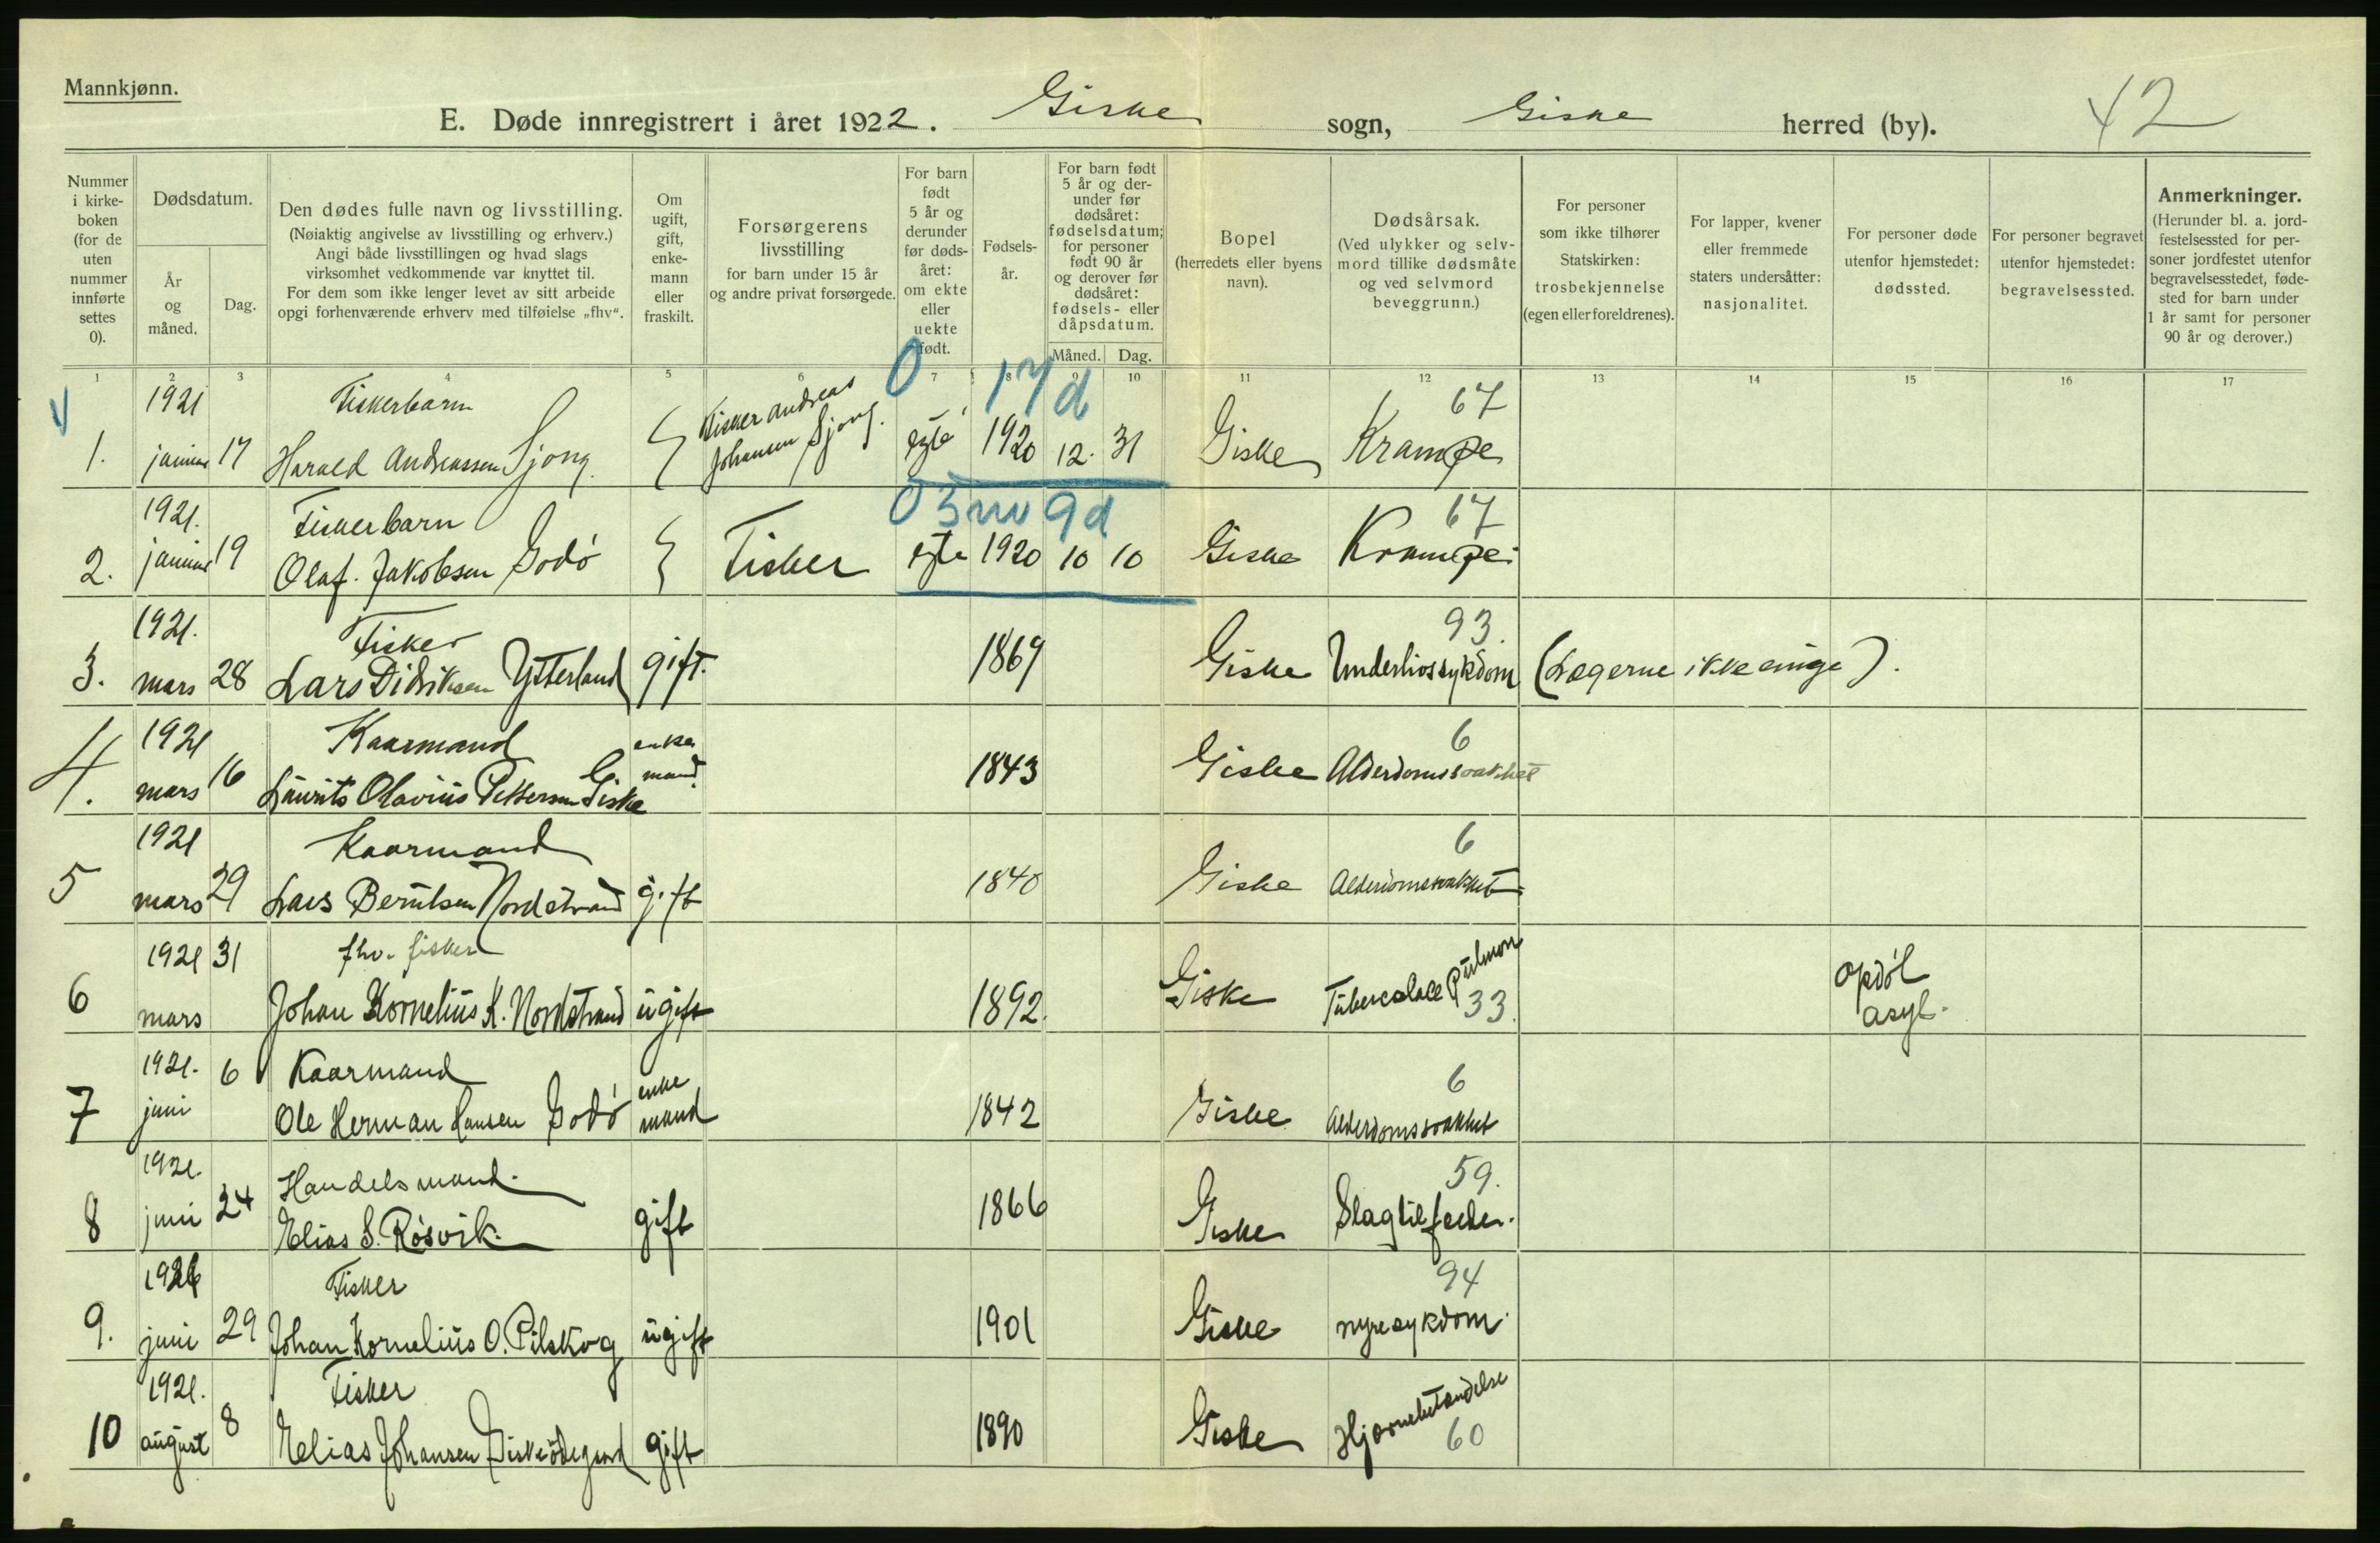 Mannkjønn.
E. Døde innregistrert i året 1922. Giske sogn, Giske herred (by). 42
Nummer i kirke-boken (for de uten nummer innførte settes 0).
Dødsdatum.
År og måned.
Dag.
Den dødes fulle navn og livsstilling.
(Nøiaktig angivelse av livsstilling og erhverv.)
Angi både livsstillingen og hvad slags
virksomhet vedkommende var knyttet til.
For dem som ikke lenger levet av sitt arbeide
opgi forhenværende erhverv med tilføielse „fhv“.
Om ugift, gift, enke-mann eller fraskilt.
Forsørgerens
livsstilling
for barn under 15 år
og andre privat forsørgede.
For barn født 5 år og derunder før døds-året: om ekte eller uekte født.
Fødsels-år.
For barn født 5 år og der-under før dødsåret: fødselsdatum; for personer født 90 år og derover før dødsåret: fødsels- eller dåpsdatum.
Måned. Dag.
Bopel
(herredets eller byens navn).
Dødsårsak.
(Ved ulykker og selv-
mord tillike dødsmåte
og ved selvmord
beveggrunn.)
For personer
som ikke tilhører
Statskirken:
trosbekjennelse
(egen eller foreldrenes).
For lapper, kvener
eller fremmede
staters undersåtter:
nasjonalitet.
For personer døde
utenfor hjemstedet:
dødssted.
For personer begravet
utenfor hjemstedet:
begravelsessted.
Anmerkninger.
(Herunder bl. a. jord-
festelsessted for per-
soner jordfestet utenfor
begravelsesstedet, føde-
sted for barn under
1 år samt for personer
90 år og derover.)
1 2 3 4 5 6 7 8 9 10 11 12 13 14 15 16 17
1921 Fiskerbarn Fisker Andreas 0 17 d 67
1. januar 17 Harald Andreassen Sjong. Johansen Sjong. egte 1920 12. 31 Giske Krampe
1921. Fiskerbarn 0 3 m 9 d 67
2. januar 19 Olaf. Jakobsen Godö Fisker egte 1920 10 10 Giske Krampe.
1921. Fisker 93.
3. mars 28 Lars Didriksen Ytterland gift. 1869 Giske Underlivssykdom (Lægerne ikke enige).
1921 Kaarmand enke 6
4. mars 16 Laurits Olavius Pettersen Giske mand. 1843 Giske Alderdomssvakhet
1921 Kaarmand 6
5 mars 29 Lars Berntsen Nordstrand gift 1840 Giske Alderdomssvakhet
1921 31 fhv. fisker Opdöl
6 mars Johan Kornelius K. Nordstrand ugift 1892. Giske Pulmon 33. asyl.
1921. 6 Kaarmand enke 6
7 juni Ole Herman Hansen Godö mand 1842 Giske Alderdomssvakhet
1921. Handelsmand. 59.
8 juni 24 Elias S. Rösvik. gift 1866 Giske Slagtilfælde.
1921 Fisker 94
9. juni 29 Johan Kornelius O. Pilskog ugift 1901 Giske nyresykdom.
1921. Fisker
10 august 8 Elias Johansen Giskeödegaard gift 1890 Giske Hjernebetændelse 60